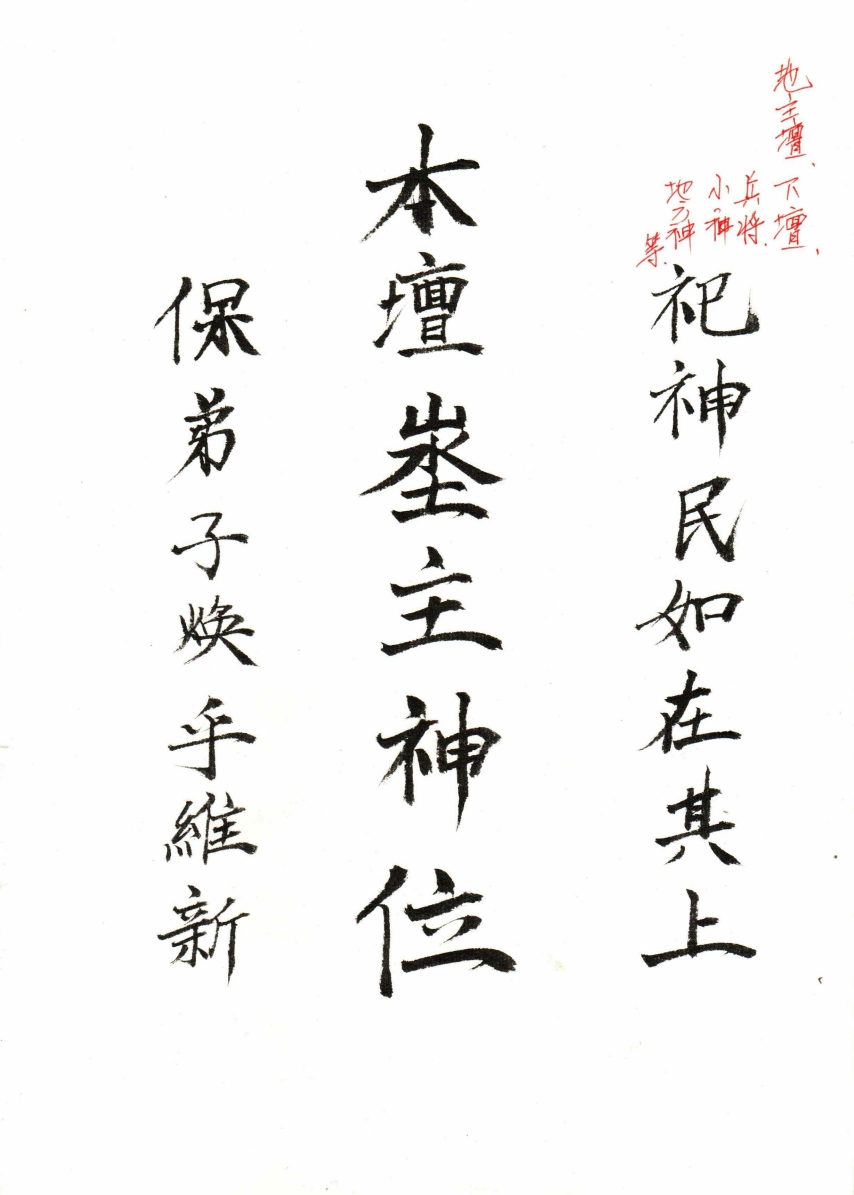 地主壇、下壇、
兵將、
小神
地方神
等、
祀神民如在其上
本壇埊主神位
保弟子煥乎維新